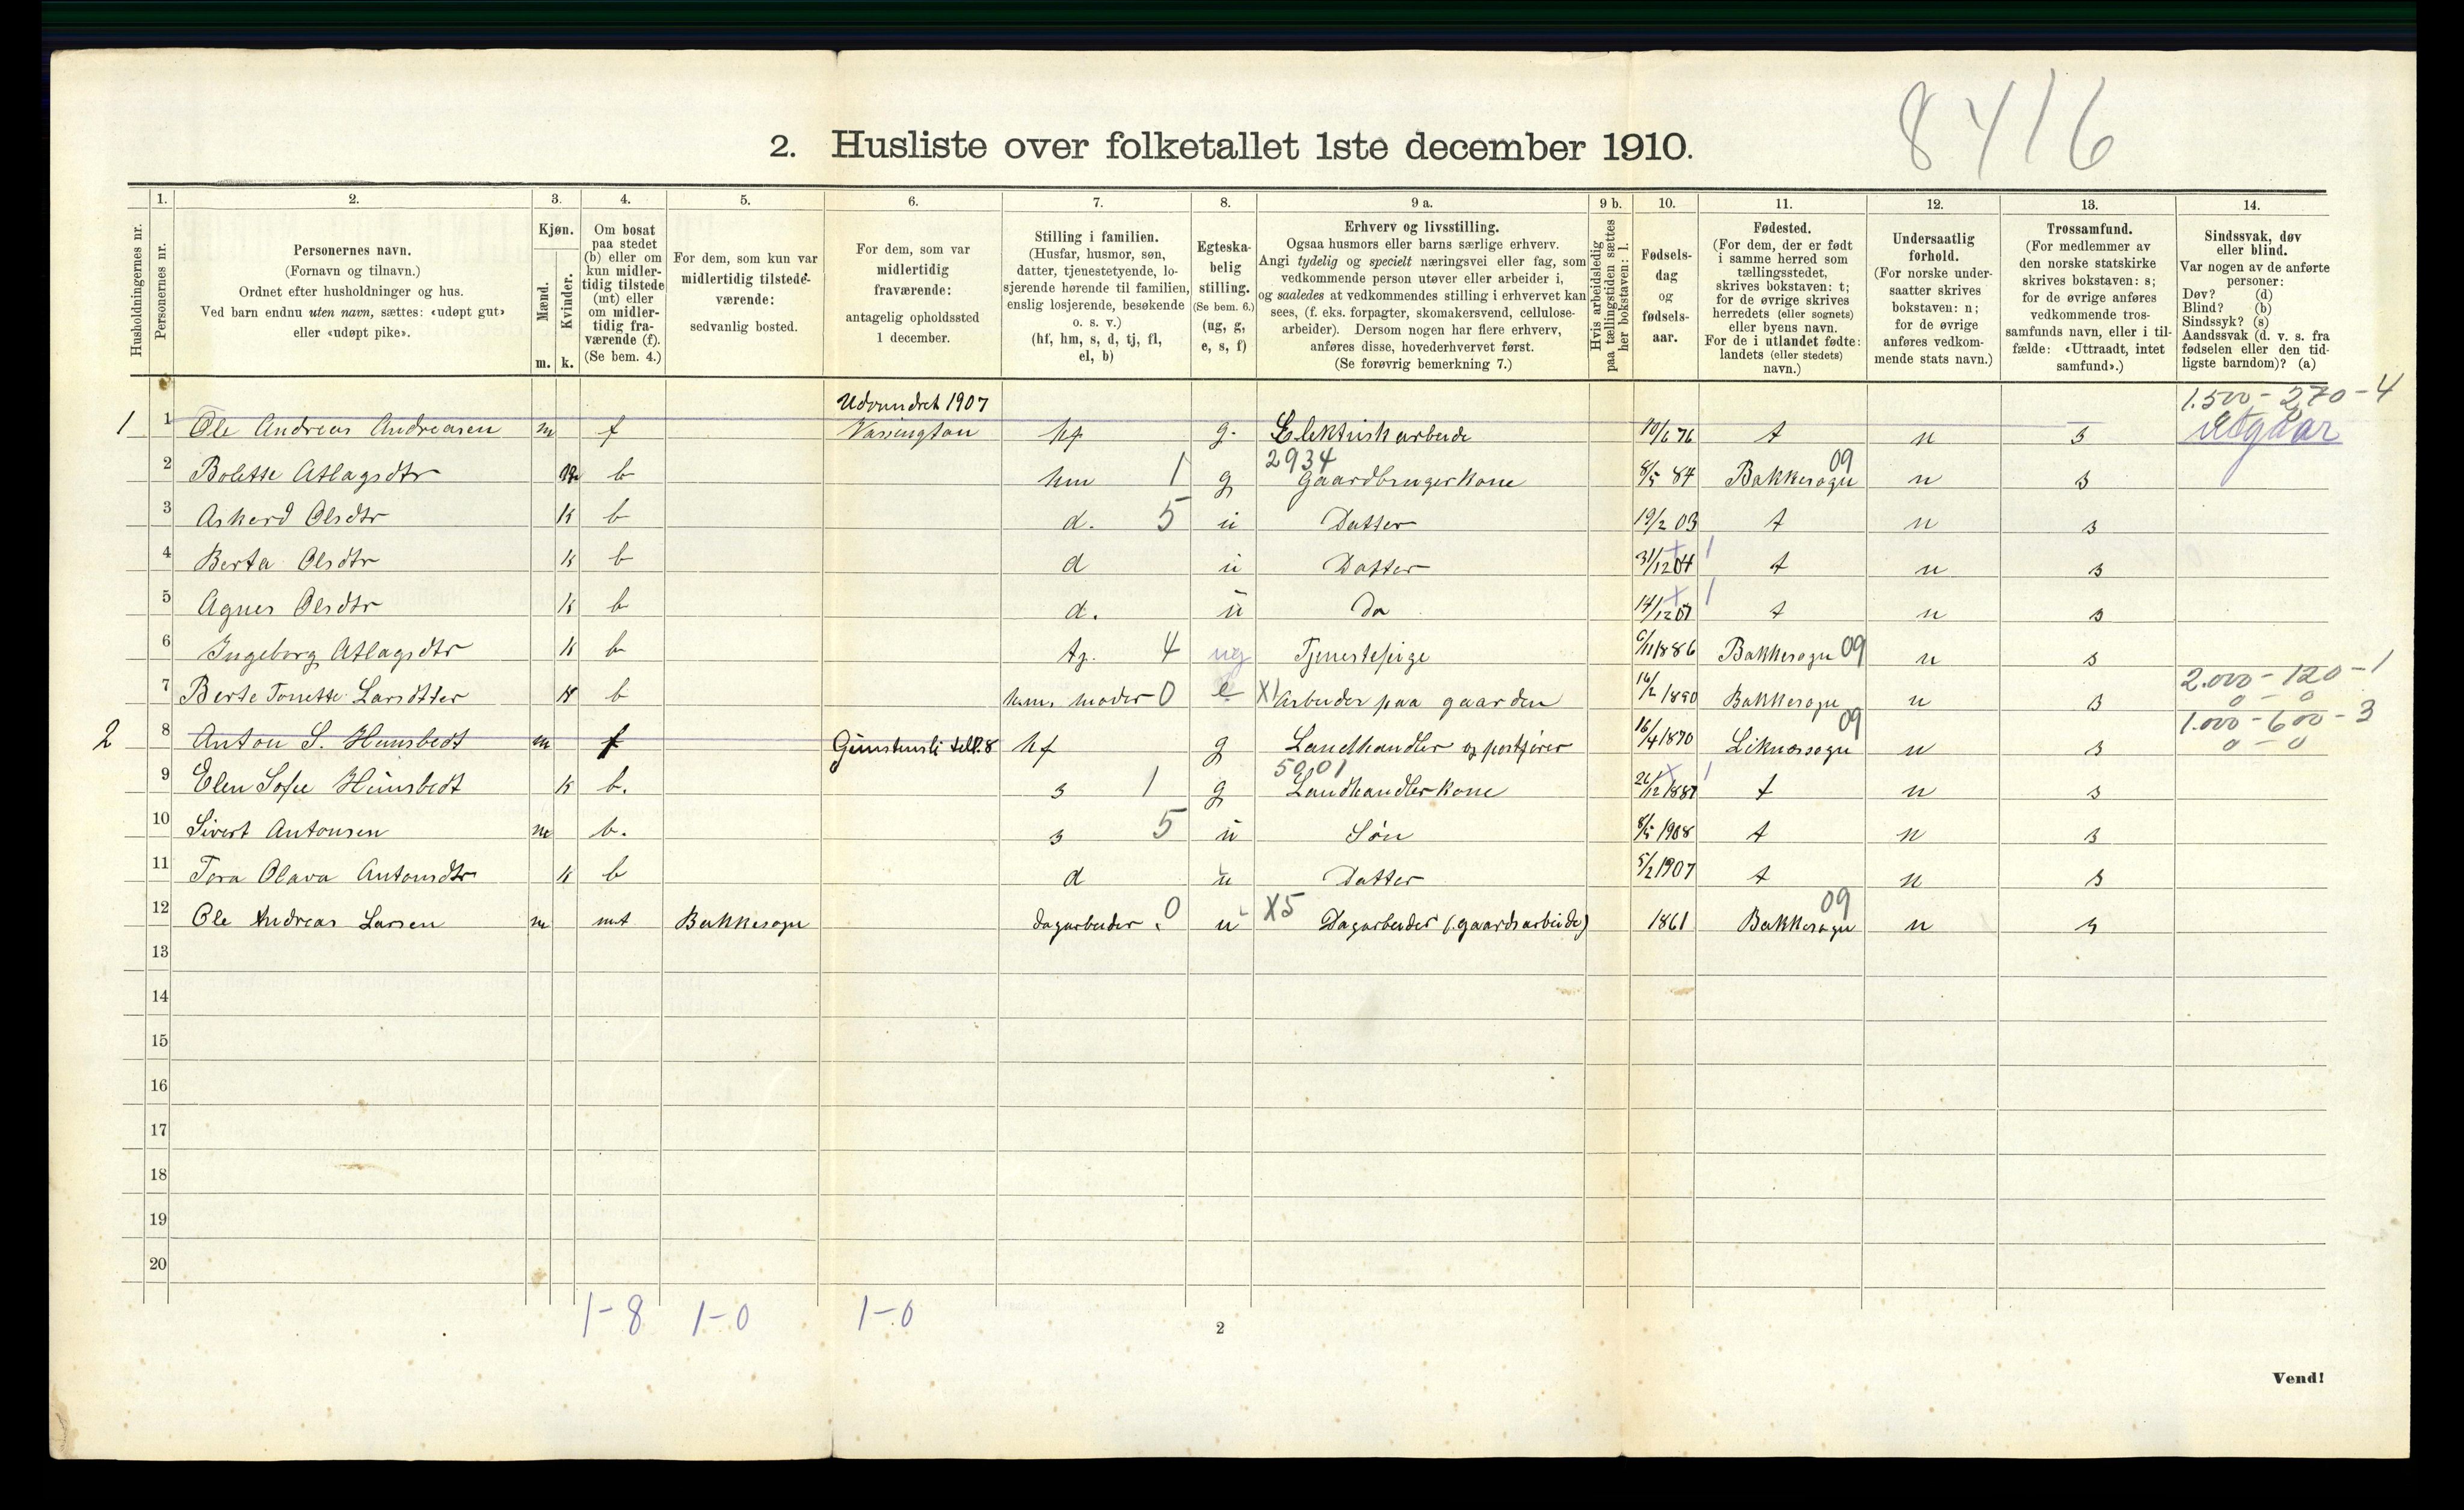 8416
2. Husliste over folketallet 1ste december 1910.
1. 2. 3. 4. 5. 6. 7. 8. 9 a. 9 b. 10. 11. 12. 13. 14.
Husholdningernes nr.
Personernes nr.
Personernes navn.
(Fornavn og tilnavn.)
Ordnet efter husholdninger og hus.
Ved barn endnu uten navn, sættes: «udøpt gut»
eller «udøpt pike».
Kjøn.
Mænd.
Kvinder.
m. k.
Om bosat
paa stedet
(b) eller om
kun midler-
tidig tilstede
(mt) eller
om midler-
tidig fra-
værende (f).
(Se bem. 4.)
For dem, som kun var
midlertidig tilstede-
værende:
sedvanlig bosted.
For dem, som var
midlertidig
fraværende:
antagelig opholdssted
1 december.
Stilling i familien.
(Husfar, husmor, søn,
datter, tjenestetyende, lo-
sjerende hørende til familien,
enslig losjerende, besøkende
o. s. v.)
(hf, hm, s, d, tj, fl,
el, b)
Egteska-
belig
stilling.
(Se bem. 6.)
(ug, g,
e, s, f)
Erhverv og livsstilling.
Ogsaa husmors eller barns særlige erhverv.
Angi tydelig og specielt næringsvei eller fag, som
vedkommende person utøver eller arbeider i,
og saaledes at vedkommendes stilling i erhvervet kan
sees, (f. eks. forpagter, skomakersvend, cellulose-
arbeider). Dersom nogen har flere erhverv,
anføres disse, hovederhvervet først.
(Se forøvrig bemerkning 7.)
Hvis arbeidsledig
paa tællingstiden sættes
her bokstaven: l.
Fødsels-
dag
og
fødsels-
aar.
Fødested.
(For dem, der er født
i samme herred som
tællingsstedet,
skrives bokstaven: t;
for de øvrige skrives
herredets (eller sognets)
eller byens navn.
For de i utlandet fødte:
landets (eller stedets)
navn.)
Undersaatlig
forhold.
(For norske under-
saatter skrives
bokstaven: n;
for de øvrige
anføres vedkom-
mende stats navn.)
Trossamfund.
(For medlemmer av
den norske statskirke
skrives bokstaven: s;
for de øvrige anføres
vedkommende tros-
samfunds navn, eller i til-
fælde: «Uttraadt, intet
samfund».)
Sindssvak, døv
eller blind.
Var nogen av de anførte
personer:
Døv? (d)
Blind? (b)
Sindssyk? (s)
Aandssvak (d. v. s. fra
fødselen eller den tid-
ligste barndom)? (a)
Udvandret 1907 1.500 - 270 - 4
1 1 Ole Andreas Andreasen m f Vassengton hf g. Elektrisk arbeide 10/6 76 t n s utgaar
2934 09
2 Bolette Atlagsdtr k b hm 1 g Gaardbrugerkone 8/5 84 Bakkesogn n s
3 Askerd Olsdtr k b d. 5 u Datter 19/2 03 t n s
4 Berta Olsdtr k b d u Datter 31/12 04 t n s
5 Agnes Olsdtr k b d. u Do 14/12 07 t n s
6 Ingeborg Atlagsdtr k b tj. 4 ug Tjenestepige 6/11 1886 Bakkesogn 09 n s
2.000 - 120 - 1
7 Berte Tonette Larsdtter k b hans moder 0 e X1 Arbeider paa gaarden 16/2 1850 Bakkesogn n s 0 - 0
09 1.000 - 600 - 3
2 8 Anton S. Hunsbedt m f tell. 8 hf g Landhandler og postfører 16/4 1870 Liknessogn n s 0 - 0
5001
9 Elen Sofie Hunsbedt k b. s 1 g Landhandlerkone 26/12 1881 t n s
10 Sivert Antonsen m b. s 5 u Søn 8/5 1908 t n s
11 Tora Olava Antonsdtr k b d u Datter 5/2 1907 t n s
09
12 Ole Andreas Larsen m mt Bakkesogn dagarbeider 0 u X5 Dagarbeider (gaardsarbeide) 1861 Bakkesogn n s
13
14
15
16
17
18
19
20
1-8 1-0 1-0
2
Vend!